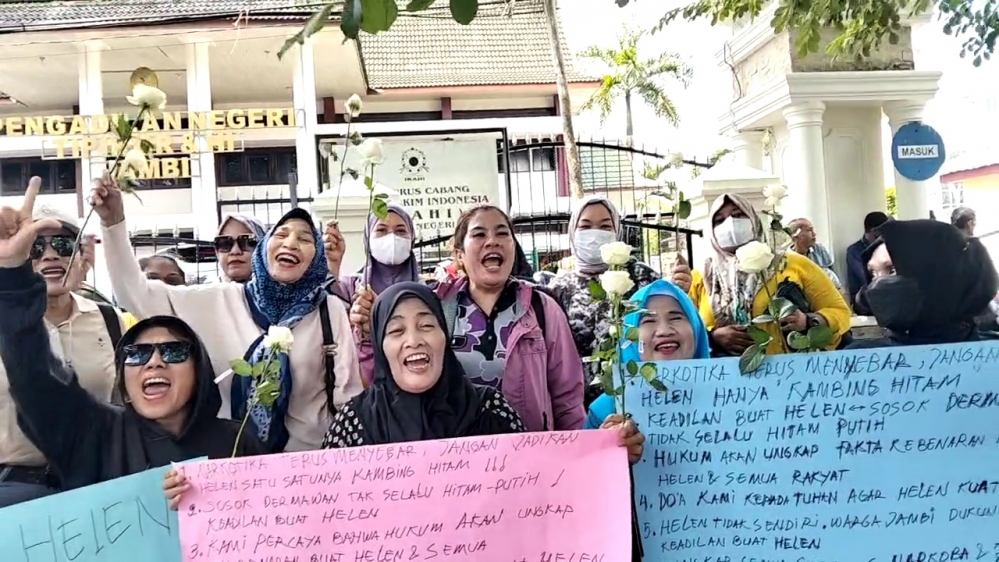 PENGADILAN NEGERI
JAMBI
IKAHI
CABANG
INDONESIA
AHI
NEGERI
MASUK
HELEN
1. NARKOTIKA TERUS MENYEBAR, JANGAN JADIKAN
HELEN SATU SATUNYA KAMBING HITAM !!!
2. SOSOK DERMAWAN TAK SELALU HITAM-PUTIH !
KEADILAN BUAT HELEN
3. KAMI PERCAYA BAHWA HUKUM AKAN UNGKAP
BUAT HELEN & SEMUA
HELEN
NARKOTIKA TERUS MENYEBAR, JANGAN
HELEN HANYA KAMBING HITAM
KEADILAN BUAT HELEN - SOSOK DERM
TIDAK SELALU HITAM PUTIH
HUKUM AKAN UNGKAP FAKTA KEBENARAN
HELEN & SEMUA RAKYAT
4. DO'A KAMI KEPADA TUHAN AGAR HELEN KUAT
5. HELEN TIDAK SENDIRI. WARGA JAMBI DUKUN
KEADILAN BUAT HELEN
NARKOBA &